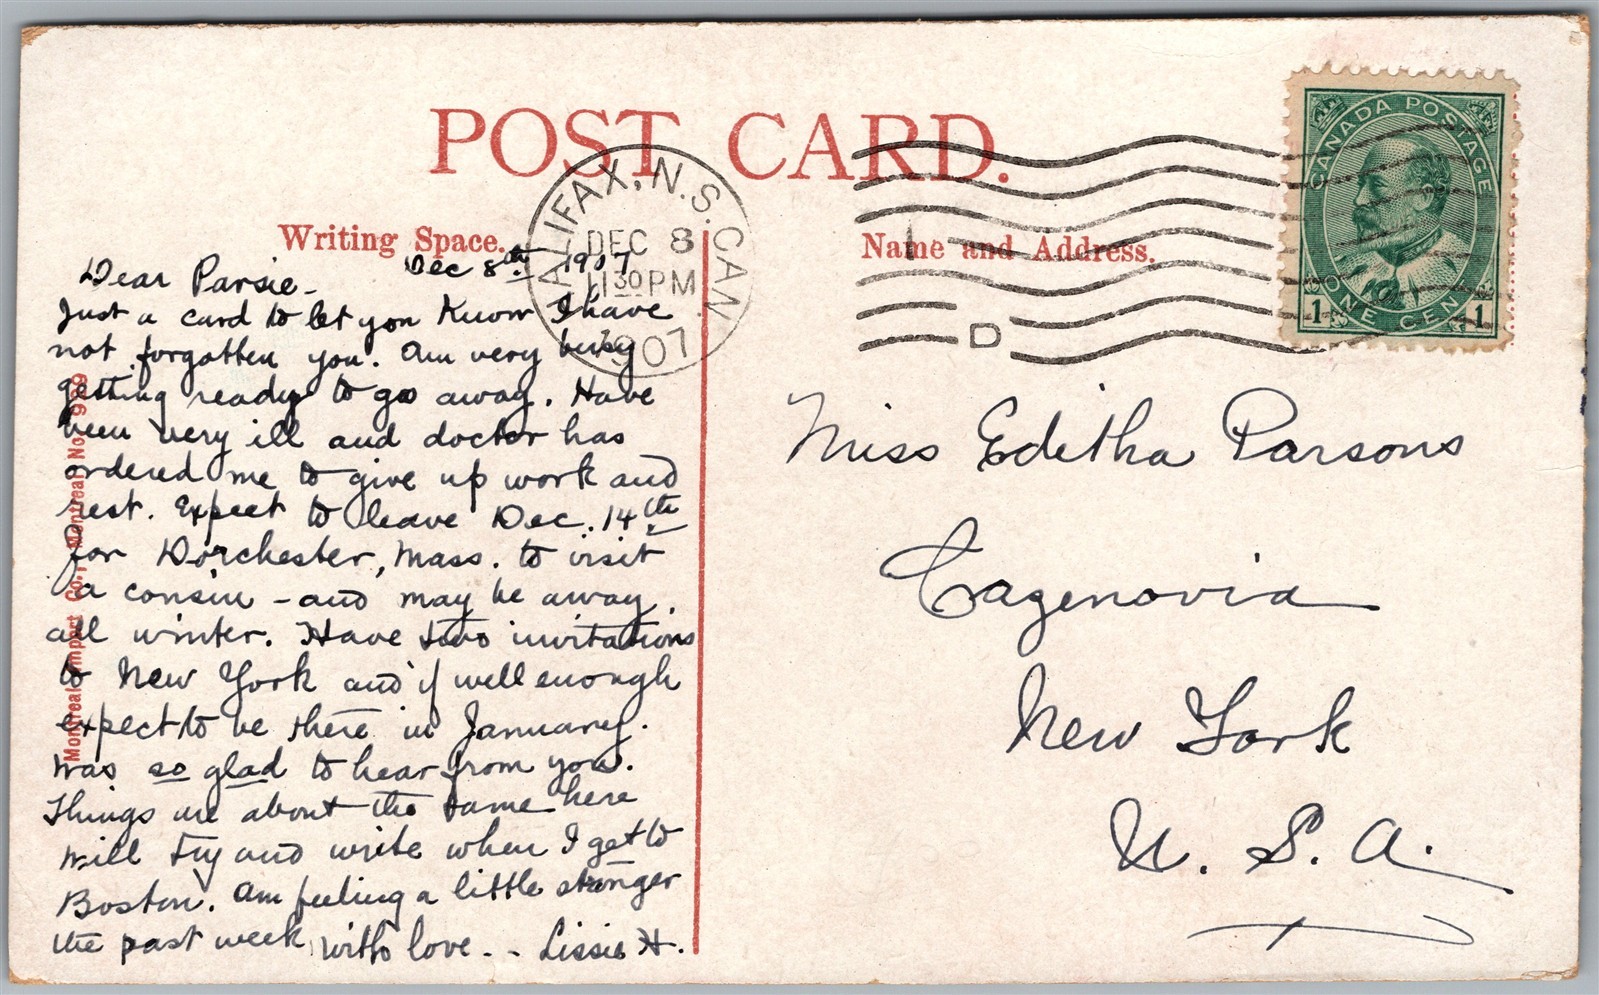 POST CARD.
Writing Space.
Name and Address.
HALIFAX, N.S. CAN.
DEC 8
11 30 PM
1907
D
CANADA POSTAGE
1 ONE CENT 1
Dec 8th 1907
Dear Parsie -
Just a card to let you know I have
not forgotten you. Am very busy
getting ready to go away. Have
been very ill and doctor has
ordered me to give up work and
rest. Expect to leave Dec. 14th
for Dorchester, Mass. to visit
a cousin - and may be away
all winter. Have two invitations
to New York and if well enough
expect to be there in January.
Was so glad to hear from you.
Things are about the same here
Will try and write when I get to
Boston. Am feeling a little stronger
the past week with love - - Lissie H.
Miss Editha Parsons
Cazenovia
New York
U. S. A.
Montreal Import Co., Montreal, No.